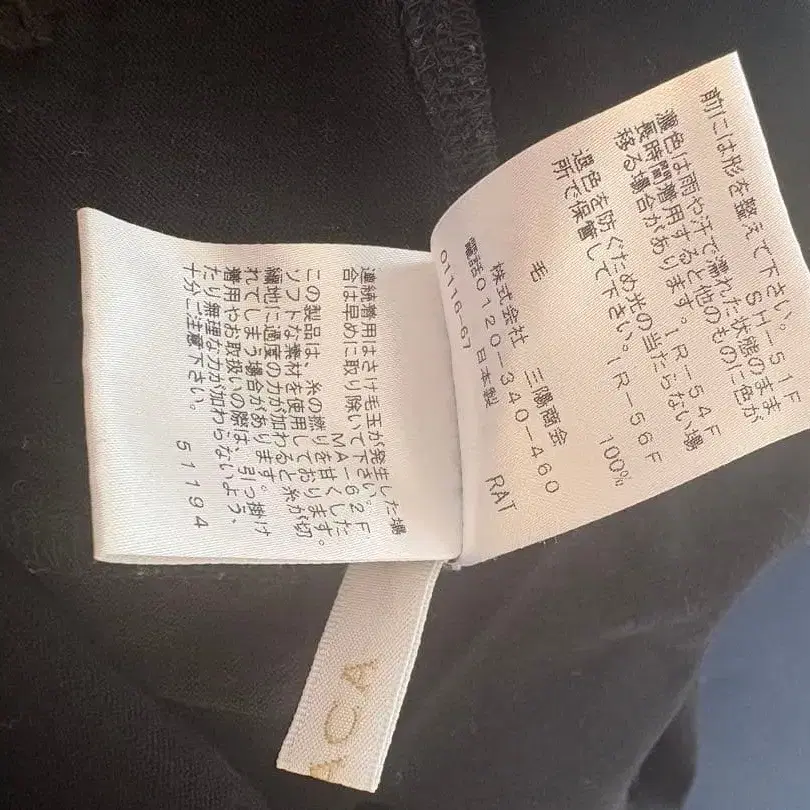 前には形を整えて下さい。
SH-51F
濃色は雨や汗で濡れた状態のまま
長時間着用すると他のものに色が
移る場合があります。IR-54F
退色を防ぐため光の当たらない場
所で保管して下さい。IR-56F
毛 100%
株式会社 三陽商会
電話0120-340-460
日本製 RAT
01116-67
連続着用はさけ毛玉が発生した場
合は早めに取り除いて下さい。
MA-62F
この製品は、糸の撚りを甘くした
ソフトな素材を使用しております。
繊地に過度の力が加わると糸が切
れてしまう場合があります。
着用やお取扱いの際は、引っ掛け
たり無理な力が加わらないよう、
十分ご注意下さい。
51194
ACA